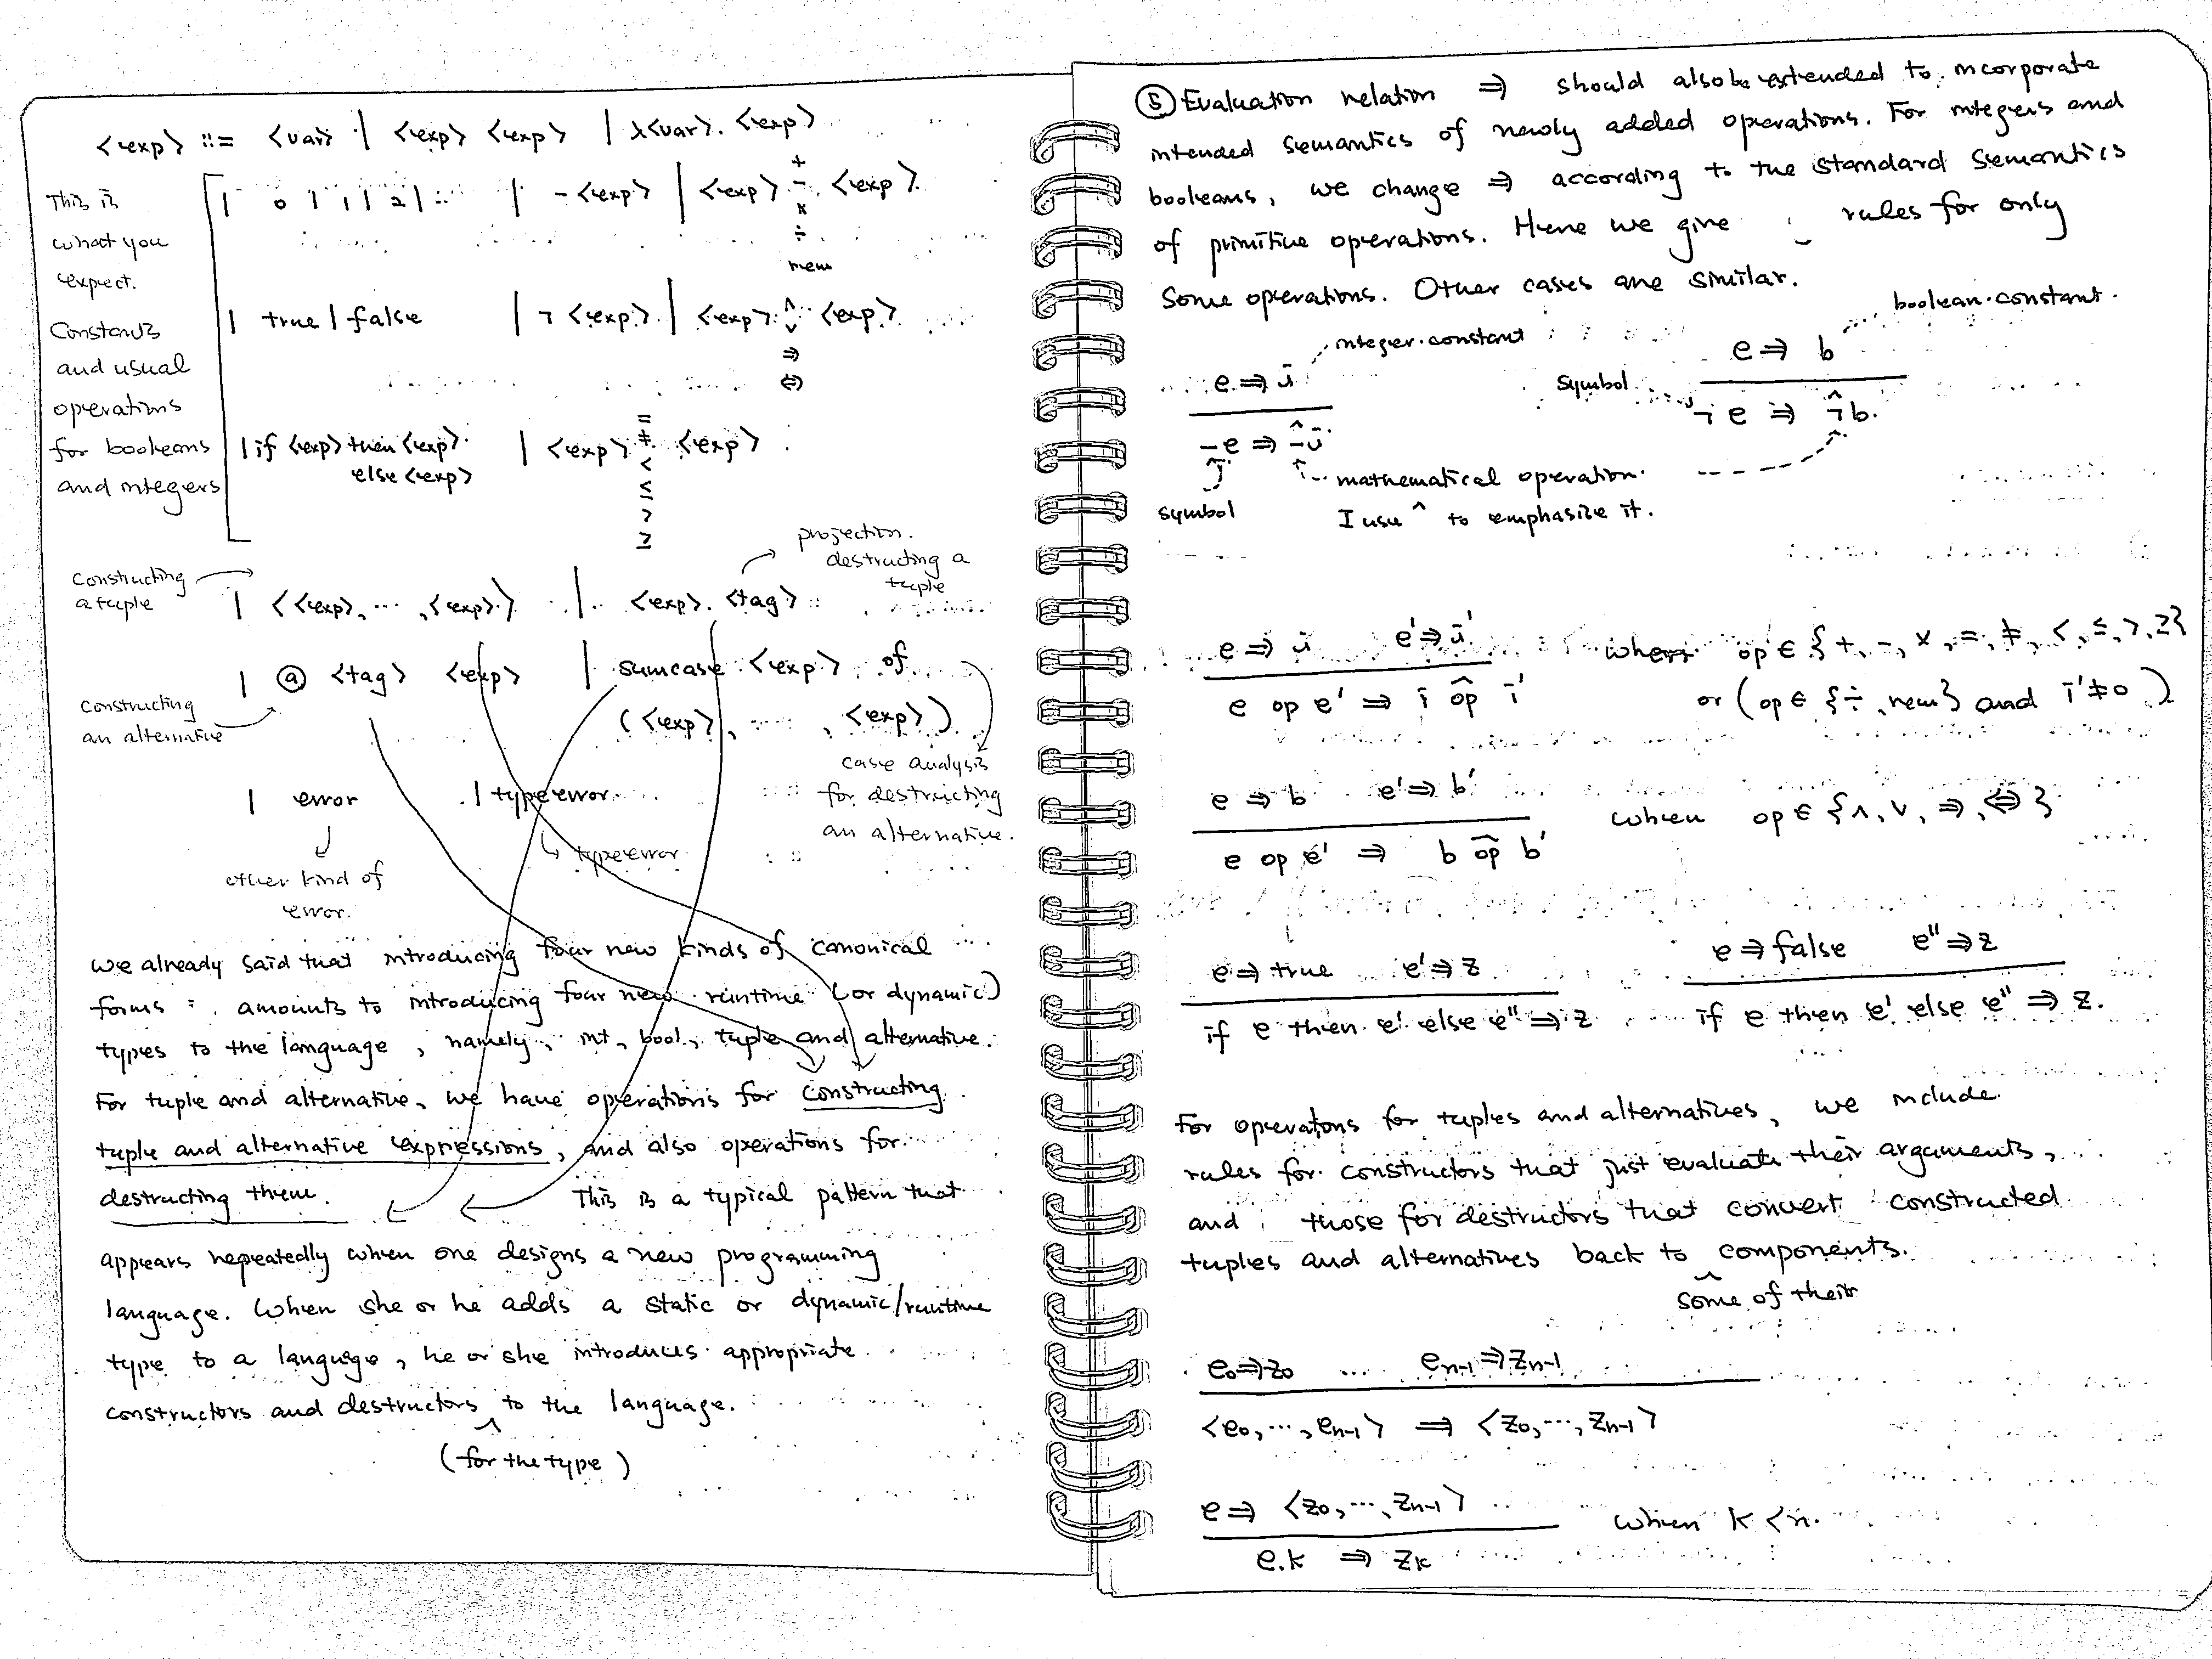 <exp> ::= <var> | <exp> <exp> | λ<var>. <exp>
This is what you expect.
Constants and usual operations for booleans and integers
| 0 | 1 | 2 | ... | - <exp> | <exp> + - × ÷ rem <exp>
| true | false | ¬ <exp> | <exp> ∧ ∨ ⇒ ⇔ <exp>
| if <exp> then <exp> else <exp> | <exp> = ≠ < ≤ > ≥ <exp>
constructing a tuple
projection. destructing a tuple
| <<exp>, ..., <exp>> | <exp>. <tag>
| @ <tag> <exp> | sumcase <exp> of
(<exp>, ..., <exp>)
constructing an alternative
case analysis for destructing an alternative.
| error | typeerror
other kind of error.
type error
We already said that introducing four new kinds of canonical
forms amounts to introducing four new runtime (or dynamic)
types to the language, namely, int, bool, tuple and alternative.
For tuple and alternative, we have operations for constructing
tuple and alternative expressions, and also operations for
destructing them. This is a typical pattern that
appears repeatedly when one designs a new programming
language. When she or he adds a static or dynamic/runtime
type to a language, he or she introduces appropriate
constructors and destructors to the language.
(for the type)
⑤ Evaluation relation ⇒ should also be extended to incorporate
intended semantics of newly added operations. For integers and
booleans, we change ⇒ according to the standard semantics
of primitive operations. Here we give rules for only
some operations. Other cases are similar.
integer constant
boolean constant.
e ⇒ ī
e ⇒ b
symbol
-e ⇒ -̂ ī
¬ e ⇒ ¬̂ b.
mathematical operation.
symbol
I use ^ to emphasize it.
e ⇒ ī e' ⇒ ī'
when op ∈ {+, -, ×, =, ≠, <, ≤, >, ≥}
e op e' ⇒ ī op̂ ī'
or (op ∈ {÷, rem} and ī' ≠ 0)
e ⇒ b e' ⇒ b'
when op ∈ {∧, ∨, ⇒, ⇔}
e op e' ⇒ b op̂ b'
e ⇒ true e' ⇒ z
e ⇒ false e'' ⇒ z
if e then e' else e'' ⇒ z
if e then e' else e'' ⇒ z.
For operatons for tuples and alternatives, we include
rules for constructors that just evaluate their arguments,
and those for destructors that convert constructed
tuples and alternatives back to components.
some of their
e₀ ⇒ z₀ ... eₙ₋₁ ⇒ zₙ₋₁
<e₀, ..., eₙ₋₁> ⇒ <z₀, ..., zₙ₋₁>
e ⇒ <z₀, ..., zₙ₋₁>
when k < n.
e.k ⇒ zₖ